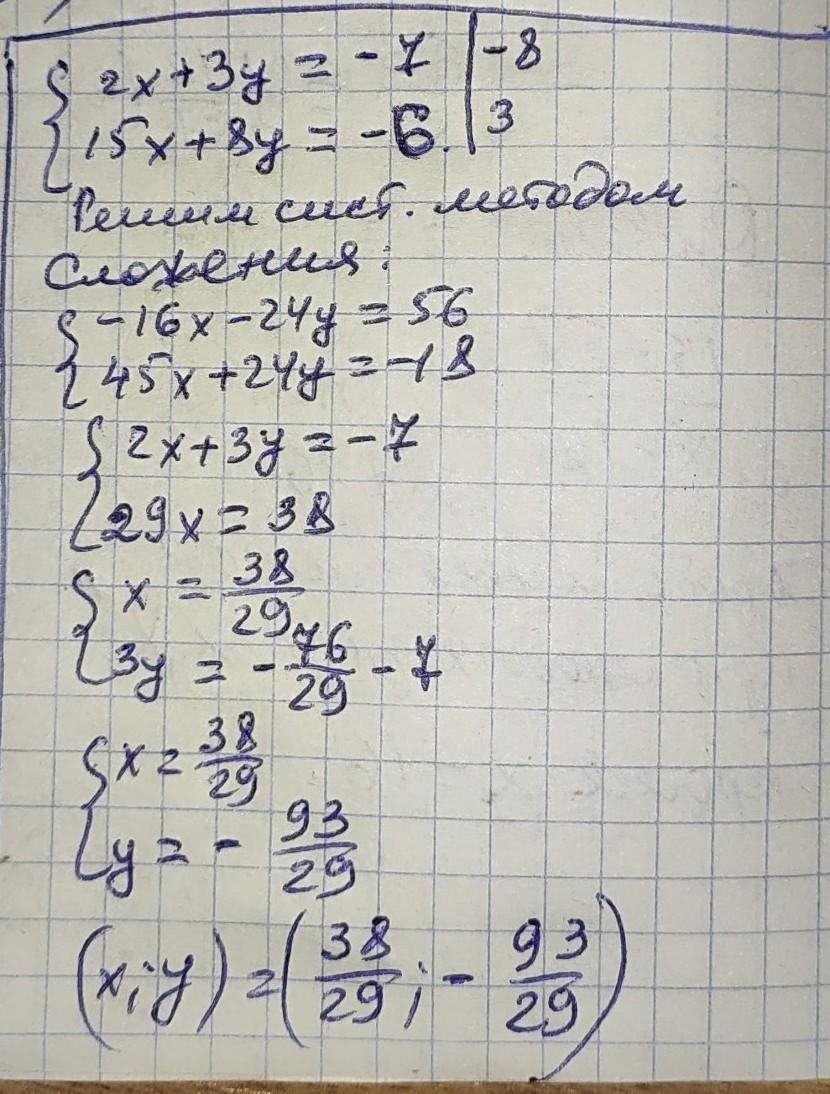 { 2x+3y = -7 | -8
{ 15x+8y = -6. | 3
Решим сист. методом
сложения:
{ -16x-24y = 56
{ 45x+24y = -18
{ 2x+3y = -7
{ 29x = 38
{ x = 38/29
{ 3y = -76/29 - 7
{ x = 38/29
{ y = - 93/29
(x;y) = (38/29; - 93/29)